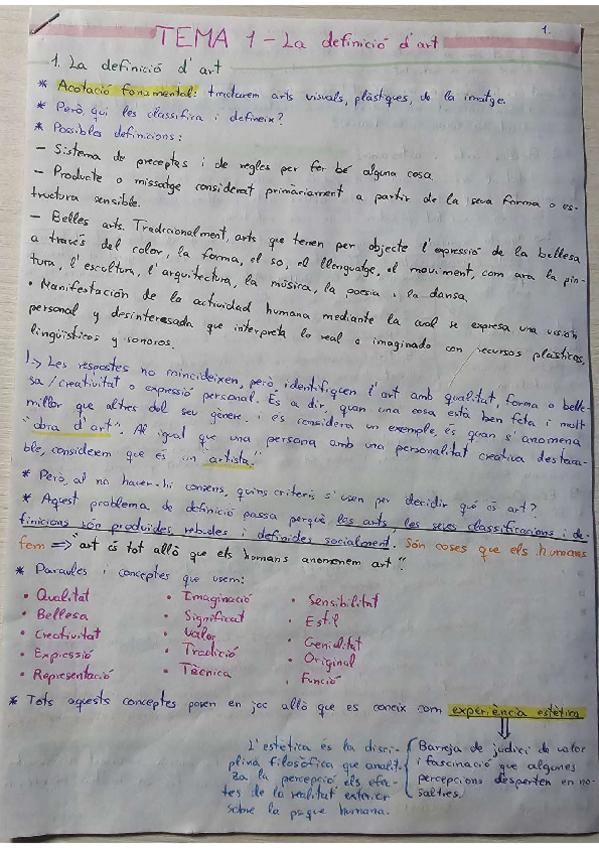 1.
TEMA 1 - La definició d'art
1. La definició d'art
* Acotació fonamental: tractarem arts visuals, plàstiques, de la imatge.
* Però, qui les classifica i defineix?
* Possibles definicions:
- Sistema de preceptes i de regles per fer bé alguna cosa.
- Producte o missatge considerat primàriament a partir de la seva forma o es-
tructura sensible.
- Belles arts. Tradicionalment, arts que tenen per objecte l'expressió de la bellesa
a través del color, la forma, el so, el llenguatge, el moviment, com ara la pin-
tura, l'escultura, l'arquitectura, la música, la poesia i la dansa.
• Manifestación de la actividad humana mediante la cual se expresa una visión
personal y desinteresada que interpreta lo real o imaginado con recursos plásticos,
lingüísticos y sonoros.
Les respostes no mincideixen, però, identifiquen l'art amb qualitat, forma o belle-
sa/creativitat o expressió personal. És a dir, quan una cosa està ben feta i molt
millor que altres del seu gènere, i es considera un exemple, és quan s'anomena
"obra d'art". Al igual que una persona amb una personalitat creativa destaca-
ble, considerem que és un "artista".
* Però, al no haver-hi consens, quins criteris s'usen per decidir què és art?
* Aquest problema de definició passa perquè les arts, les seves classificacions i de-
finicions són produïdes, rebudes i definides socialment. Són coses que els humans
fem => "art és tot allò que els humans anomenem art".
* Paraules i conceptes que usem:
• Qualitat • Imaginació • Sensibilitat
• Bellesa • Significat • Estil
• Creativitat • Valor • Genialitat
• Expressió • Tradició • Original
• Representació • Tècnica • Funció
* Tots aquests conceptes posen en joc allò que es coneix com experiència estètica
L'estètica és la disci-
plina filosòfica que analit-
za la percepció, els efec-
tes de la realitat exterior
sobre la psique humana.
Barreja de judici de valor
i fascinació que algunes
percepcions desperten en no-
saltres.